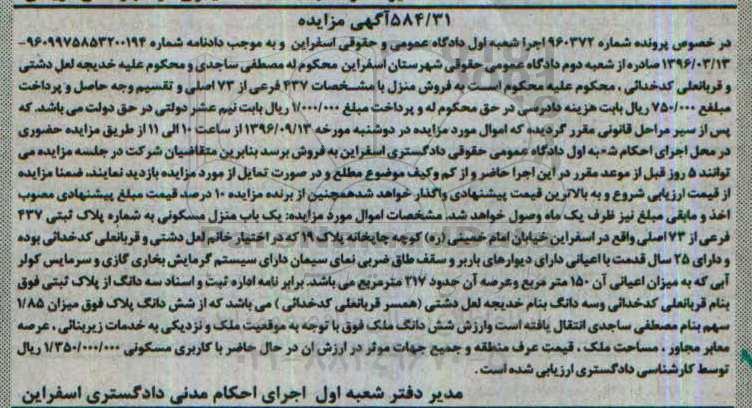 ۵۸۴/۳۱آگهی مزایده
در خصوص پرونده شماره ۹۶۰۳۷۲ اجرا شعبه اول دادگاه عمومی و حقوقی اسفراین و به موجب دادنامه شماره ۹۶۰۹۹۷۵۸۵۳۲۰۰۱۹۴-
۱۳۹۶/۰۳/۱۳ صادره از شعبه دوم دادگاه عمومی حقوقی شهرستان اسفراین محکوم له مصطفی ساجدی و محکوم علیه خدیجه لعل دشتی
و قربانعلی کدخدائی ، محکوم علیه محکوم است به فروش منزل با مشخصات ۴۳۷ فرعی از ۷۳ اصلی و تقسیم وجه حاصل و پرداخت
مبلغ ۷۵۰/۰۰۰ ریال بابت هزینه دادرسی در حق محکوم له و پرداخت مبلغ ۱/۰۰۰/۰۰۰ ریال بابت نیم عشر دولتی در حق دولت می باشد. که
پس از سیر مراحل قانونی مقرر گردیده که اموال مورد مزایده در دوشنبه مورخه ۱۳۹۶/۰۹/۱۳ از ساعت ۱۰ الی ۱۱ از طریق مزایده حضوری
در محل اجرای احکام شعبه اول دادگاه عمومی حقوقی دادگستری اسفراین به فروش برسد بنابرین متقاضیان شرکت در جلسه مزایده می
توانند ۵ روز قبل از موعد مقرر در این اجرا حاضر و از کم وکیف موضوع مطلع و در صورت تمایل از مورد مزایده بازدید نمایند، ضمنا مزایده
از قیمت ارزیابی شروع و به بالاترین قیمت پیشنهادی واگذار خواهد شدهمچنین از برنده مزایده ۱۰ درصد قیمت مبلغ پیشنهادی مصوب
اخذ و مابقی مبلغ نیز ظرف یک ماه وصول خواهد شد، مشخصات اموال مورد مزایده: یک باب منزل مسکونی به شماره پلاک ثبتی ۴۳۷
فرعی از ۷۳ اصلی واقع در اسفراین خیابان امام خمینی (ره) کوچه چاپخانه پلاک ۱۹ که در اختیار خانم لعل دشتی و قربانعلی کدخدائی بوده
و دارای ۲۵ سال قدمت با اعیانی دارای دیوارهای باربر و سقف طاق ضربی نمای سیمان دارای سیستم گرمایش بخاری گازی و سرمایس کولر
آبی که به میزان اعیانی آن ۱۵۰ متر مربع وعرصه آن حدود ۲۱۷ مترمربع می باشد. برابر نامه اداره ثبت و اسناد سه دانگ از پلاک ثبتی فوق
بنام قربانعلی کدخدائی وسه دانگ بنام خدیجه لعل دشتی (همسر قربانعلی کدخدائی ) می باشد که از شش دانگ پلاک فوق میزان ۱/۸۵
سهم بنام مصطفی ساجدی انتقال یافته است وارزش شش دانگ ملک فوق با توجه به موقعیت ملک و نزدیکی به خدمات زیربنائی ، عرصه
معابر مجاور ، مساحت ملک ، قیمت عرف منطقه و جمیع جهات موثر در ارزش ان در حال حاضر با کاربری مسکونی ۱/۳۵۰/۰۰۰/۰۰۰ ریال
توسط کارشناسی دادگستری ارزیابی شده است.
مدیر دفتر شعبه اول اجرای احکام مدنی دادگستری اسفراین